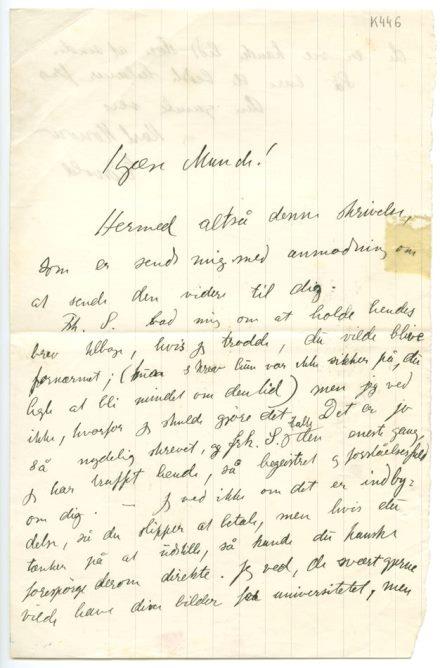 K446
Kjære Munch!
Hermed altså denne skrivelse,
som er sendt mig med anmodning om
at sende den videre til dig.
Frk. S. bad mig om at holde hendes
brev tilbage, hvis jeg trodde, du vilde blive
fornærmet; (hun skrev hun var ikke sikker på, du
ligte at bli mindet om den tid) men jeg ved
ikke, hvorfor jeg skulde gjøre det. Det er jo
så nydelig skrevet, og frk. S. talte den eneste gang,
jeg har truffet hende, så begeistret og forståelsesfuldt
om dig. — Jeg ved ikke om det er indby-
delse, så du slipper at betale, men hvis du
tænker på at udstille, så kunde du kanske
forespørge derom direkte. Jeg ved, de svært gjerne
vilde have dine bilder for universitetet, men